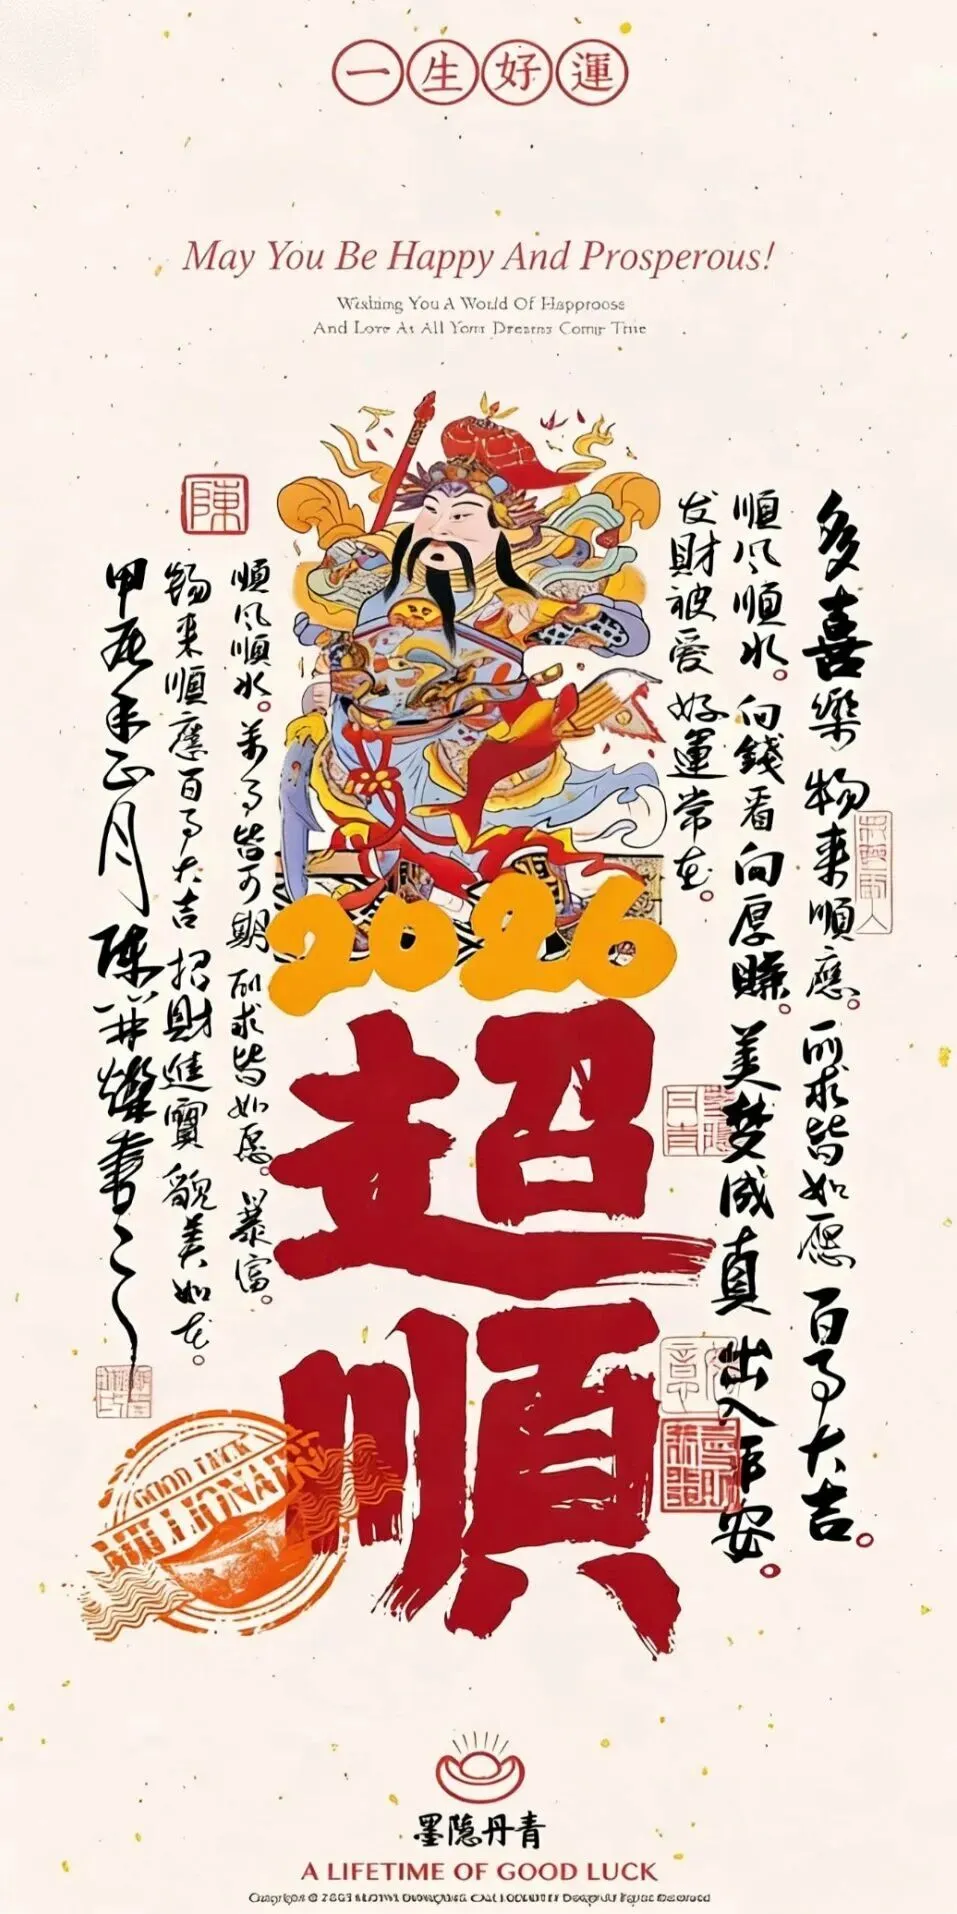 一生好運
May You Be Happy And Prosperous!
Wishing You A World Of
And Love As All Your Dreams Come True
陳
多喜樂 物来順應。所求皆如愿 百事大吉。
順风順水。向錢看向厚賺。美梦成真 出入平安。
发財被爱 好運常在。
2026
超順
順风順水。萬事皆可期 所求皆如愿。暴富。
物来順應百事大吉 招財進寶 貌美如花。
甲辰年正月 陈 燦書
GOOD LUCK
MILLIONAIRE
墨隐丹青
A LIFETIME OF GOOD LUCK